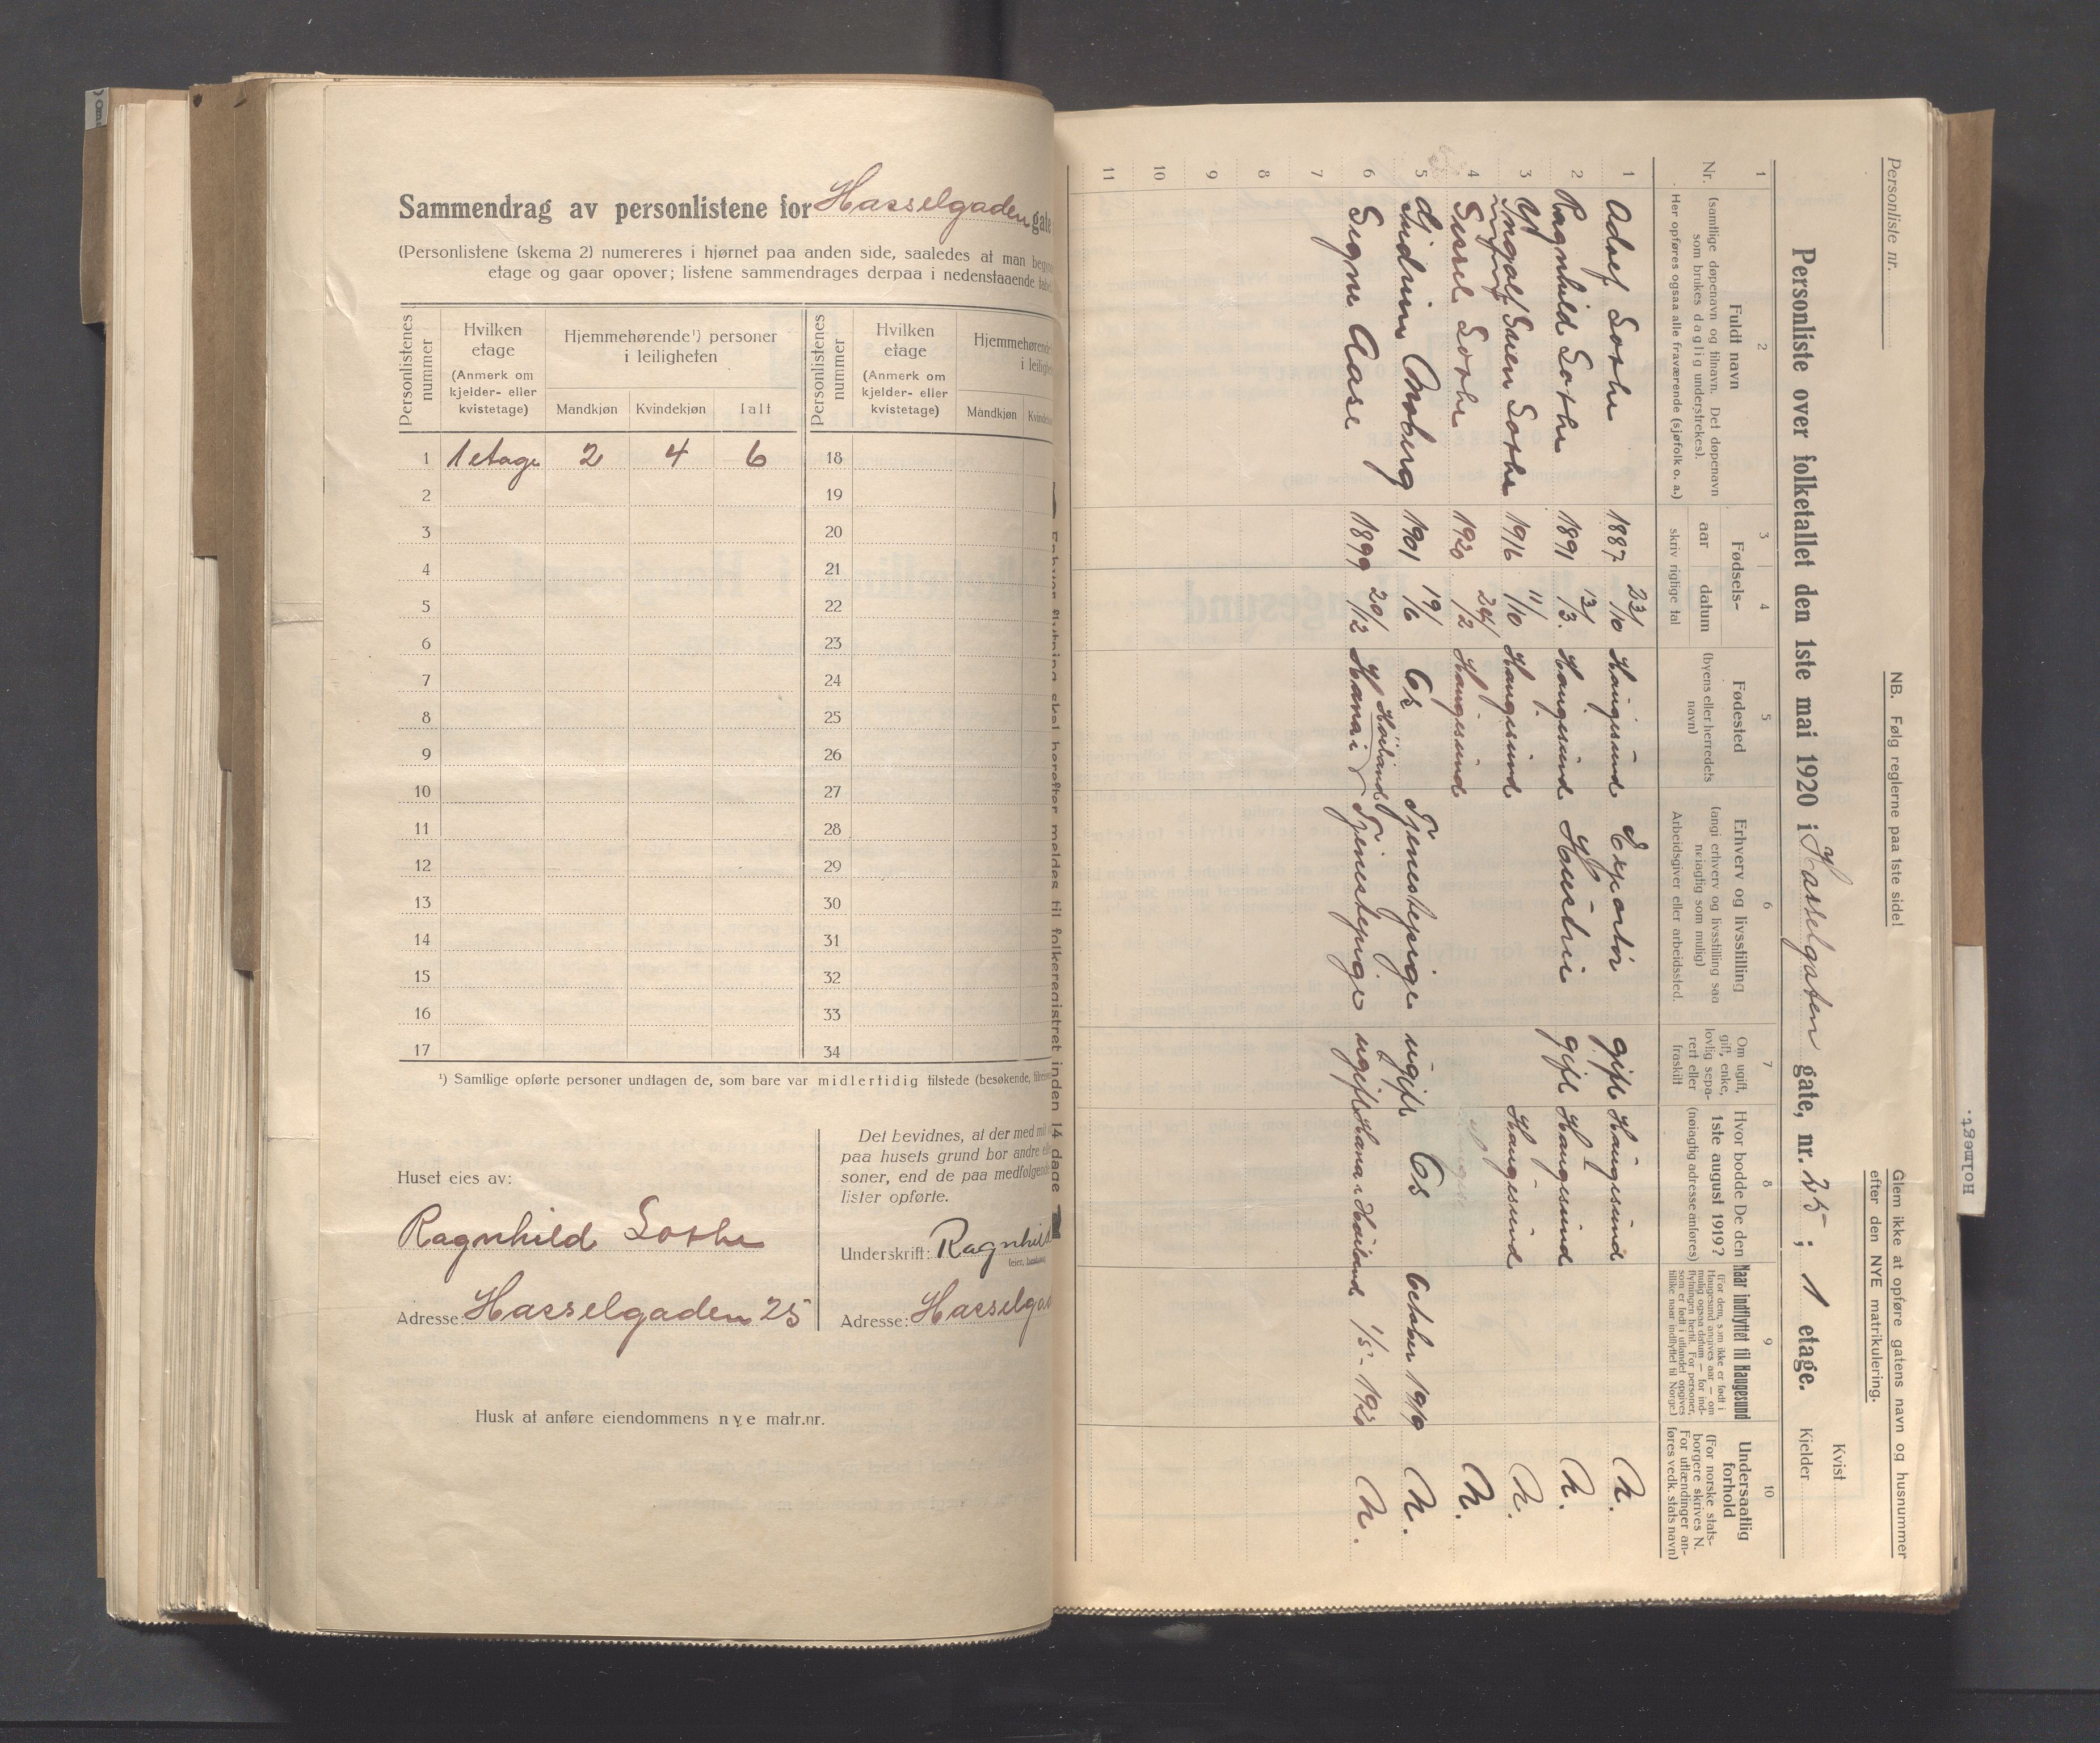 Sammendrag av personlistene for Hasselgaden gate
(Personlistene (skema 2) numereres i hjørnet paa anden side, saaledes at man
etage og gaar opover; listene sammendrages derpaa i nedenstaaende
Personlistenes nummer
Hvilken etage
(Anmerk om kjelder- eller kvistetage)
Hjemmehørende¹) personer i leiligheten
Mandkjøn Kvindekjøn Ialt
Personlistenes nummer
Hvilken etage
(Anmerk om kjelder- eller kvistetage)
Hjemmehørende
Mandkjøn
1 1 etage 2 4 6 18
2 19
3 20
4 21
5 22
6 23
7 24
8 25
9 26
10 27
11 28
12 29
13 30
14 31
15 32
16 33
17 34
¹) Samtlige opførte personer undtagen de, som bare var midlertidig tilstede (besøkende,
Huset eies av:
Ragnhild Sothe
Adresse: Hasselgaden 25
Det bevidnes, at der med
paa husets grund bor andre
soner, end de paa medfølgende
lister opførte.
Underskrift: Ragnhild
Adresse: Hasselga
Husk at anføre eiendommens nye matr.nr.
flytning skal herefter meldes til folkeregistret inden 14 dage
Personliste nr.
NB. Følg reglerne paa 1ste side!
Glem ikke at opføre gatens navn og husnummer
efter den NYE matrikulering.
Kvist
Personliste over folketallet den 1ste mai 1920 i Hasselgaten gate, nr. 25 ; 1 etage.
Kjelder
1 2 3 4 5 6 7 8 9 10
Nr.
Fuldt navn
(samtlige døpenavn og tilnavn. Det døpenavn
som brukes daglig understrekes).
Her opføres ogsaa alle fraværende (sjøfolk o. a.)
Fødsels-
aar datum
skriv rigtige tal
Fødested
(byens eller herredets
navn)
Erhverv og livsstilling
(angi erhverv og livsstilling saa
nøiagtig som mulig)
Arbeidsgiver eller arbeidssted.
Om ugift,
gift, enke,
lovlig sepa-
rert eller
fraskilt
Hvor bodde De den
1ste august 1919?
(nøiagtig adresse anføres)
Naar indflyttet til Haugesund
(For dem, som ikke er født i
Haugesund angives aar — om
mulig ogsaa datum — for ind-
flytningen hertil. For personer,
som er født i utlandet opgives
tillike naar indflyttet til Norge.)
Undersaatlig
forhold
(For norske stats-
borgere skrives N.
For utlændinger an-
føres vedk. stats navn)
1 Adolf Sothe 1887 23/10 Haugesund Exportør gift Haugesund N.
2 Ragnhild Sothe 1891 13/3 Haugesund Hustru gift Haugesund N.
3 Ingolf Svein Sothe 1916 11/10 Haugesund Haugesund N.
4 Sissel Sothe 1920 24/2 Haugesund N.
5 Gudrun Moberg 1901 19/6 Os Tjenestepige ugift Os October 1919 N.
6 Signe Aase 1899 20/12 Hana i Høiland Tjenestepige ugift Hana i Høiland 1/5 - 1920 N.
7
8
9
10
11
Holmegt.